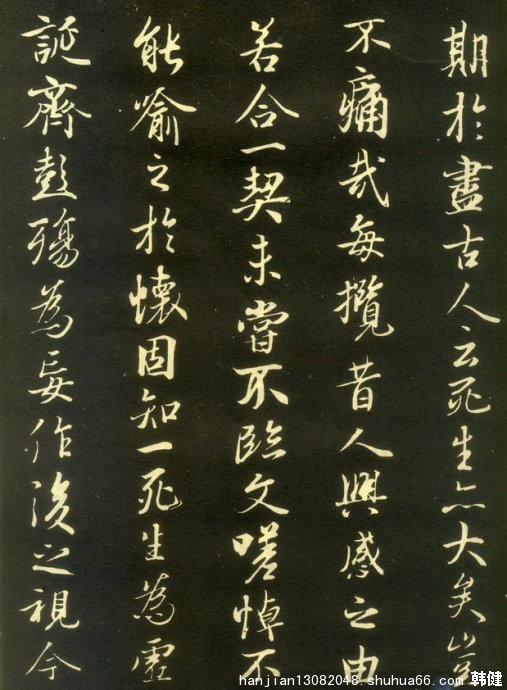 期於盡古人云死生亦大矣豈
不痛哉每攬昔人興感之由
若合一契未嘗不臨文嗟悼不
能喻之於懷固知一死生為虛
誕齊彭殤為妄作後之視今
hanjian13082048.shuhua66.com 韩健